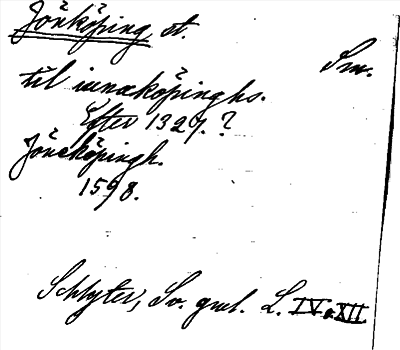 Jönköping, st.
Sm.
til iunakøpinghs.
Efter 1327. ?
Jöneköpingh.
1598.
Schlyter, Sv. gml. L. IV o. XII